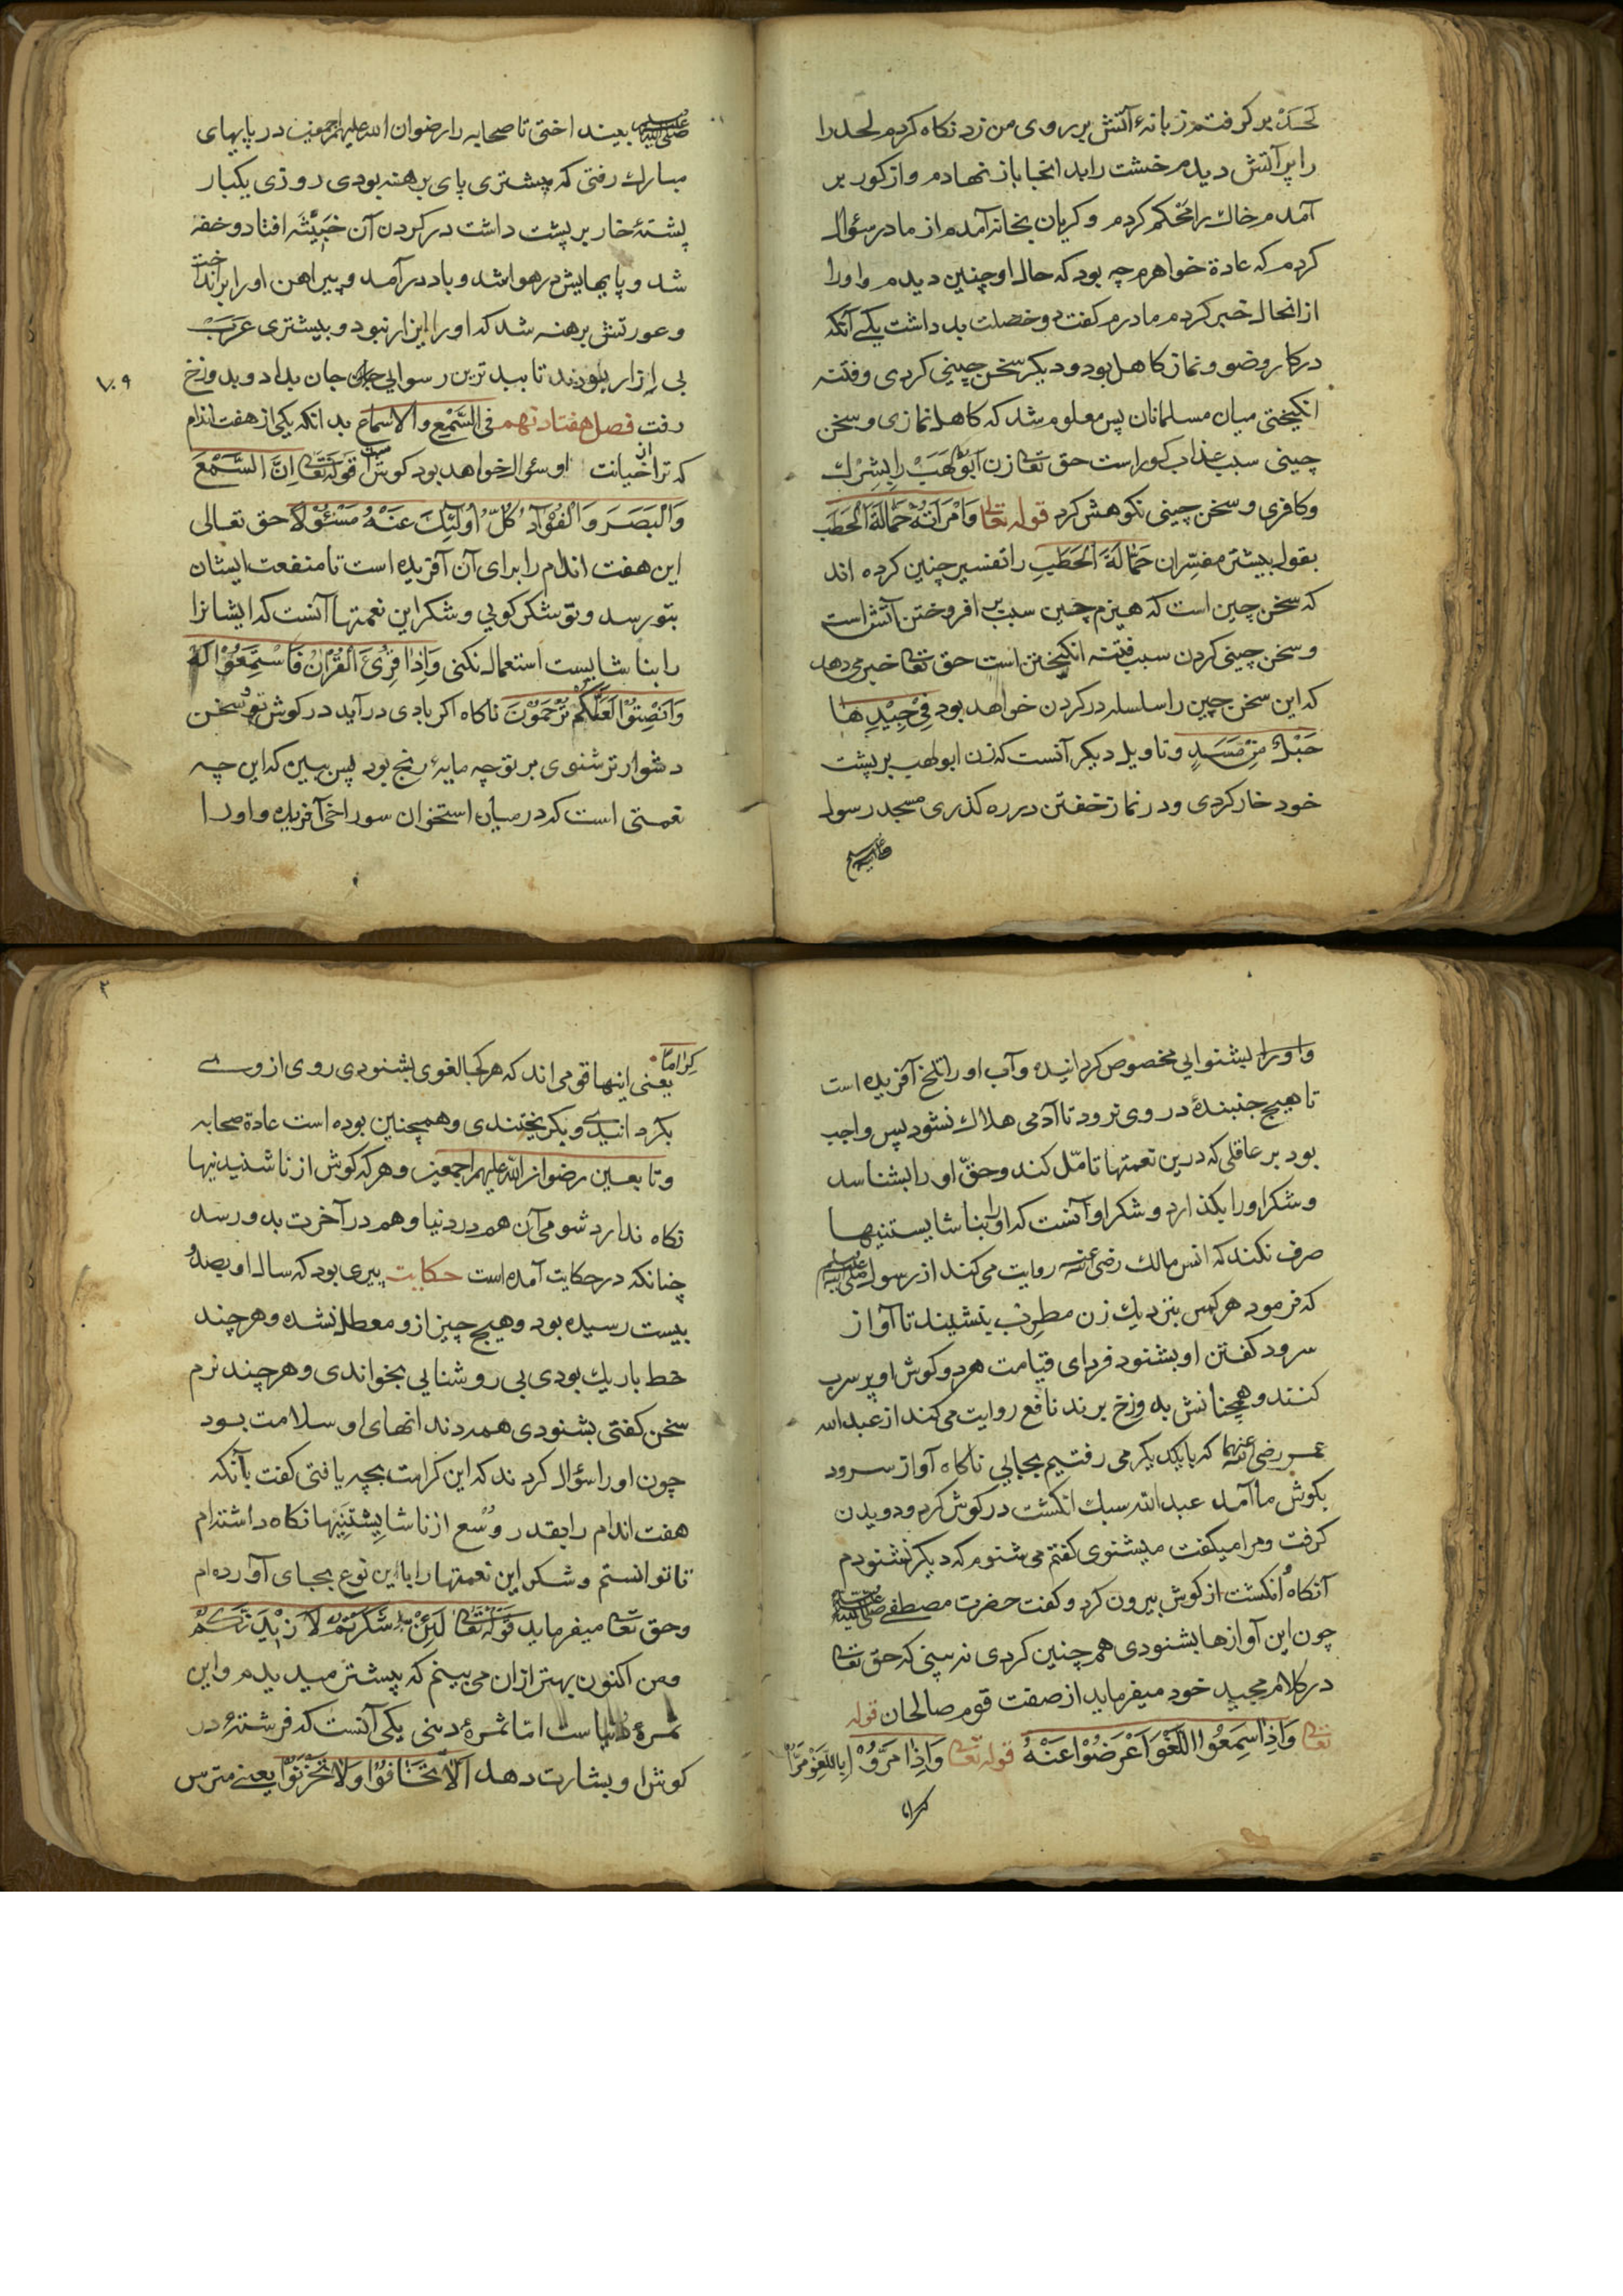 لحد بر گرفتم زبانهٔ آتش بر روی من زد نکاه کردم لحد را
را پر آتش دیدم خشت را بدانجا باز نهادم و از کور بر
آمدم خاک را محکم کردم و کریان بخانه آمدم از مادر سؤال
کردم که عادة خواهرم چه بود که حال او چنین دیدم و او را
از انحال خبر کردم مادرم کفت دو خصلت بد داشت یکی آنکه
در کار وضو و نماز کاهل بود و دیکر سخن چینی کردی و فتنه
انکیختی میان مسلمانان پس معلوم شد که کاهل نمازی و سخن
چینی سبب عذاب کور است حق تعالی زن ابو لهب را بشرک
و کافری و سخن چینی نکوهش کرد قوله تعالی وَامْرَأَتُهُ حَمَّالَةَ الْحَطَبِ
بقول بیشتر مفسّران حَمَّالَةَ الْحَطَبِ را تفسیر چنین کرده اند
که سخن چین است که هیزم چین سبب بر افروختن آتش است
و سخن چینی کردن سبب فتنه انکیختن است حق تعالی خبر می دهد
که این سخن چین را سلسله در کردن خواهد بود فِي جِيْدِهَا
حَبْلٌ مِنْ مَسَدٍ و تاویل دیکر آنست که زن ابو لهب بر پشت
خود خار کردی و در نماز خفتن در ره کذری مسجد رسول
صلی الله علیه وسلم بیند اختی تا صحابه را رضوان الله علیهم اجمعین در پایهای
مبارک رفتی که پیشتری پای برهنه بودی روزی یکبار
پشتهٔ خار بر پشت داشت در کردن آن خبیثه افتاد و خفه
شد و پایهایش در هوا شد و باد در آمد و پیراهن او را بر انداخت
و عورتش برهنه شد که او را ایزار نبود و بیشتری عرب
بی ازار بودند تا ببد ترین رسوایی جان بداد و بدوزخ
رفت فصل هفتاد نهم فی السَّمْع والاسماع بد انکه یکی از هفت اندام
که ترا از خیانت او سؤال خواهد بود کوش است قوله تعالی اِنَّ السَّمْعَ
وَالْبَصَرَ وَالْفُؤَادَ كُلُّ اُولٰئِكَ عَنْهُ مَسْئُوْلًا حق تعالی
این هفت اندام را برای آن آفریده است تا منفعت ایشان
بتو رسد و تو شکر کویی و شکر این نعمتها آنست که ایشانرا
را بنا شایست استعمال نکنی وَاِذَا قُرِئَ الْقُرْاٰنُ فَاسْتَمِعُوْا لَهُ
وَاَنْصِتُوْا لَعَلَّكُمْ تُرْحَمُوْنَ ناکاه اکر بادی در آید در کوش تو و سخن
دشوار تر شنوی بر تو چه مایهٔ رنج بود پس ببین که این چه
نعمتی است که در میان استخوان سوراخی آفریده و او را
و او را بشنوایی مخصوص کردانیده و آب او را تلخ آفریده است
تا هیچ جنبندهٔ در وی نرود تا آدمی هلاک نشود پس واجب
بود بر عاقلی که درین نعمتها تامّل کند و حقّ او را بشناسد
و شکر او را بکذارد و شکر او آنست که او را بنا شایستنیها
صرف نکند که انس مالک رضی الله عنه روایت می کند از رسول صلی الله علیه وسلم
که فرمود هر کس بنزدیک زن مطرب بنشیند تا آواز
سرود کفتن او بشنود فردای قیامت هر دو کوش او پر سرب
کنند و همچنانش به دوزخ برند نافع روایت می کند از عبد الله
عمر رضی الله عنهما که با یکدیکر می رفتیم بجایی ناکاه آواز سرود
بکوش ما آمد عبد الله سبک انکشت در کوش کرد و دویدن
کرفت و مرا میکفت میشنوی کفتم می شنوم که دیکر نشنودم
آنکاه انکشت از کوش بیرون کرد و کفت حضرت مصطفی صلی الله علیه وسلم
چون این آوازها بشنودی همچنین کردی نه بینی که حق تعالی
در کلام مجید خود میفرماید از صفت قوم صالحان قوله
تعالی وَاِذَا سَمِعُوْا اللَّغْوَ اَعْرَضُوْا عَنْهُ قوله تعالی وَاِذَا مَرُّوْا بِاللَّغْوِ مَرُّوْا
کراما
كِرَامًا یعنی اینها قومی اند که هر کجا لغوی بشنودی روی از وی
بکردانیدی و بکریختندی و همچنین بوده است عادة صحابه
و تابعین رضوان الله علیهم اجمعین و هر که کوش از نا شنیدنیها
نکاه ندارد شومی آن هم در دنیا و هم در آخرت بدو رسد
چنانکه در حکایت آمده است حکایت پیری بود که سال او بصد و
بیست رسیده بود و هیچ چیز از و معطل نشده و هر چند
خط باریک بودی بی روشنایی بخواندی و هر چند نرم
سخن کفتی بشنودی همه دندانهای او سلامت بود
چون او را سؤال کردند که این کرامت بچه یافتی کفت بآنکه
هفت اندام را بقدر وُسع از نا شایستنیها نکاه داشته ام
تا توانستم و شکر این نعمتها را با این نوع بجای آورده ام
و حق تعالی میفرماید قوله تعالی لَئِنْ شَكَرْتُمْ لَاَزِيْدَنَّكُمْ
و من اکنون بهتر از ان می بینم که پیشتر میدیدم و این
ثمرهٔ است امّا ثمرهٔ دینی یکی آنست که فرشتهٔ در
کوش او بشارت دهد اَلَّا تَخَافُوْا وَلَا تَحْزَنُوْا یعنی مترس